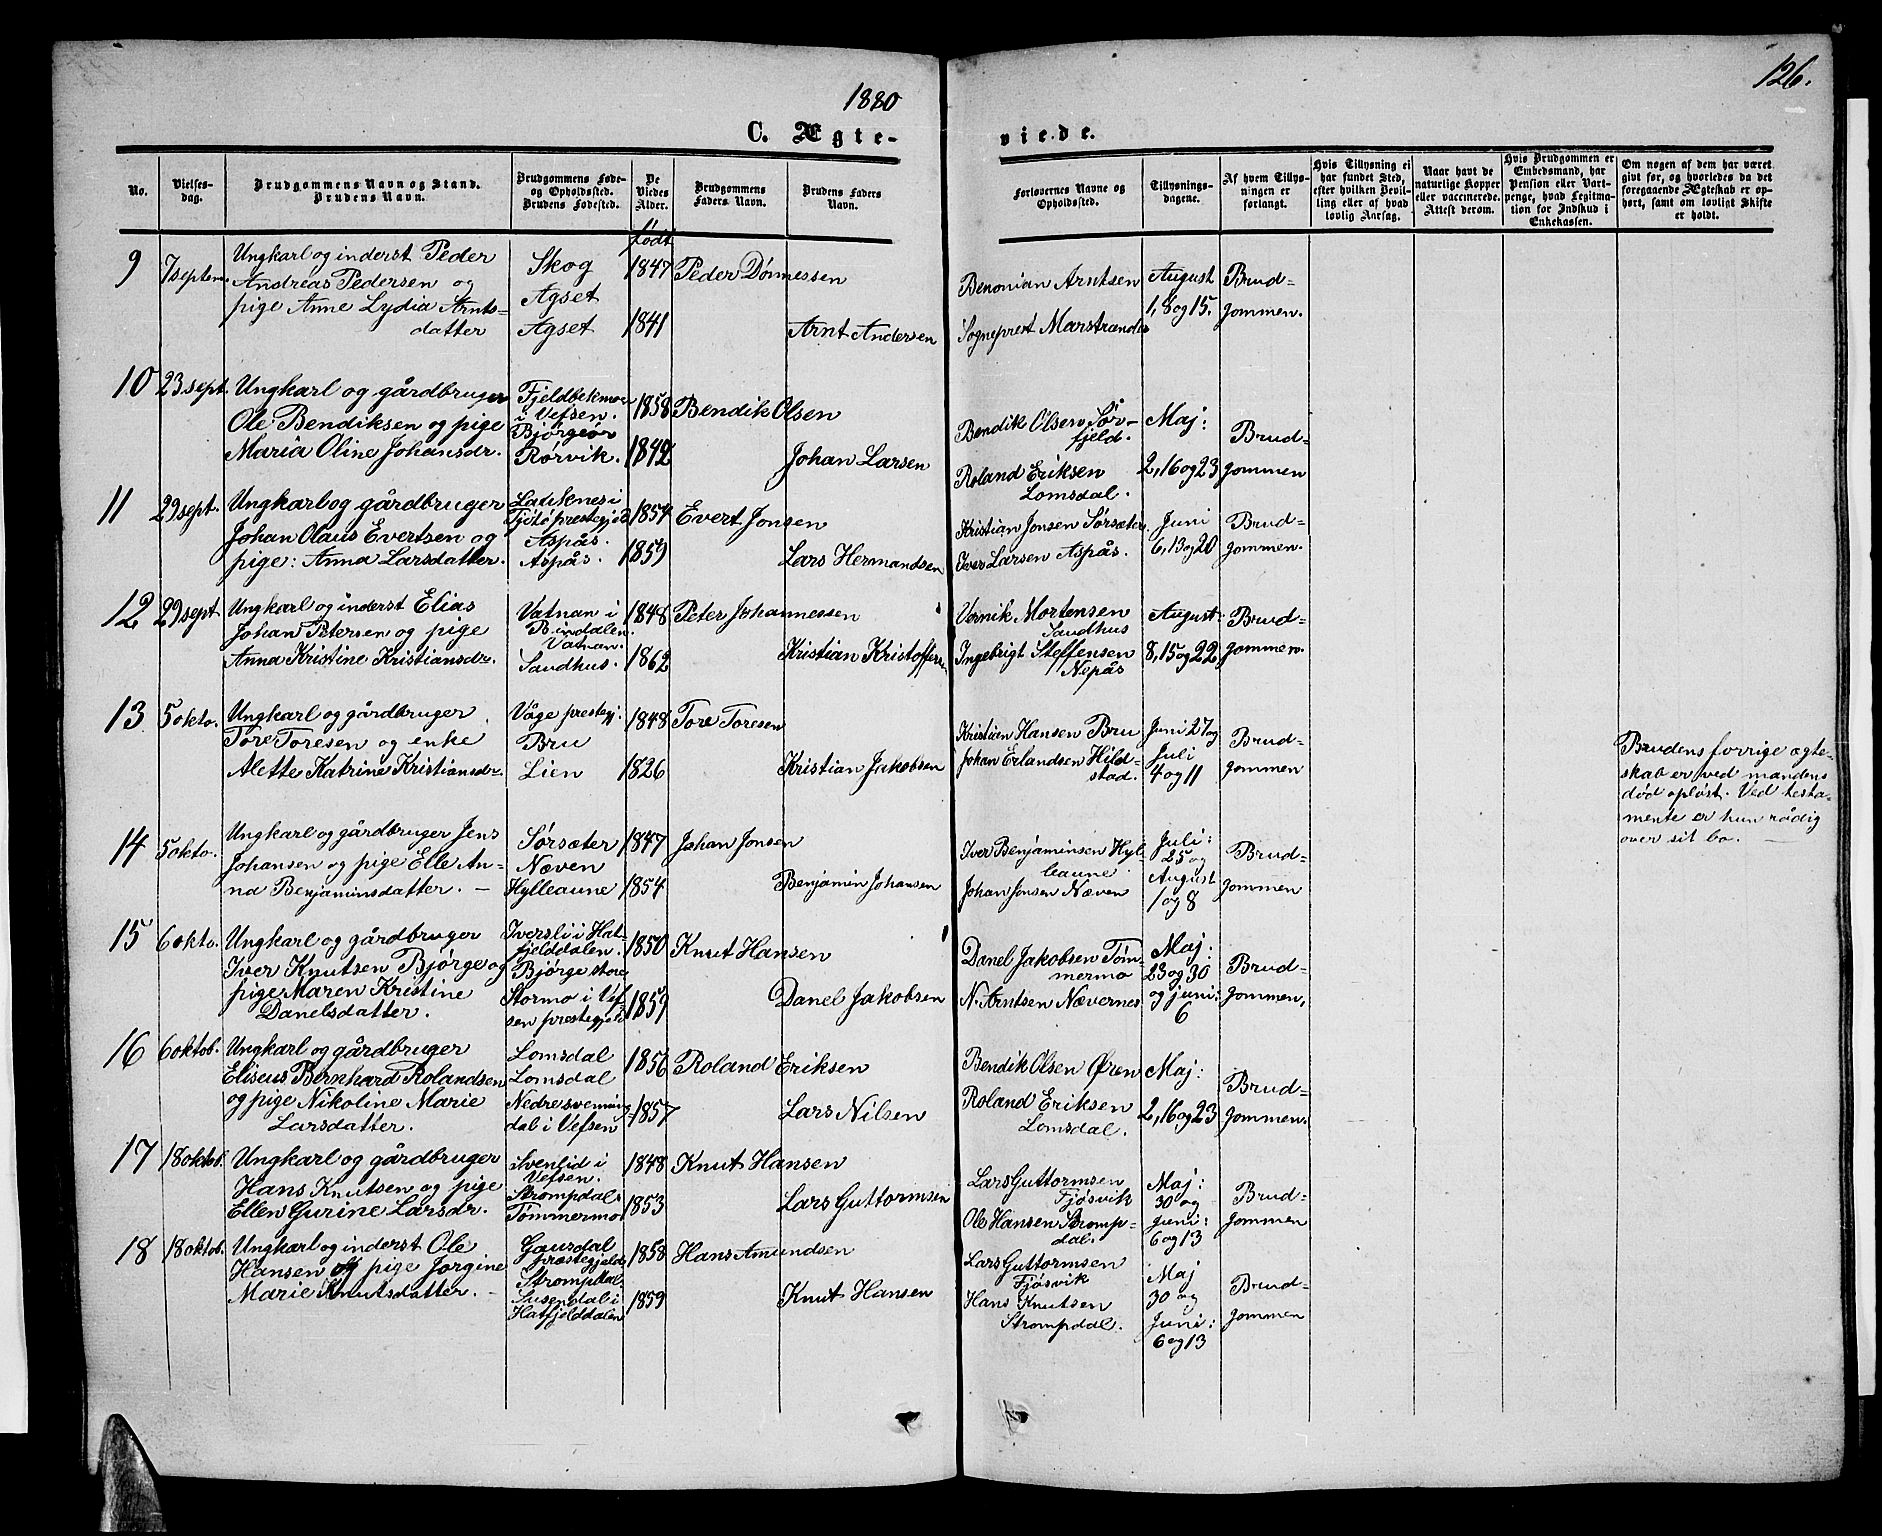 126.
1880
C. Ægte-
viede.
No.
Vielses-
dag.
Brudgommens Navn og Stand.
Brudens Navn.
Brudgommens Føde-
og Opholdssted.
Brudens Fødested.
De
Viedes
Alder.
Brudgommens
Faders Navn.
Brudens Faders
Navn.
Forlovernes Navne og
Opholdssted.
Tillysnings-
dagene.
Af hvem Tillys-
ningen er
forlangt.
Hvis Tillysning ei
har fundet Sted,
efter hvilken Bevil-
ling eller af hvad
lovlig Aarsag.
Naar havt de
naturlige Kopper
eller vaccinerede.
Attest derom.
Hvis Brudgommen er
Embedsmand, har
Pension eller Vart-
penge, hvad Legitma-
tion for Indskud i
Enkekassen.
Om nogen af dem har været
givt før, og hvorledes da det
foregaaende Ægteskab er op-
hørt, samt om lovligt Skifte
er holdt.
født
9
7 septem.
Ungkarl og inderst Peder
Andreas Pedersen og
pige Anne Lydia Arnts-
datter
Skog
Agset
Agset
1847
1841
Peder Dønnessen
Arnt Andersen
Benonian Arntsen
Sogneprest Marstrander
August
1, 8 og 15.
Brud-
gommen.
10
23 sept.
Ungkarl og gårdbruger
Ole Bendiksen og pige
Maria Oline Johansdr.
Fjeldbekmo
i Vefsen.
Bjørgeør
Rørvik.
1858
1842
Bendik Olsen
Johan Larsen
Bendik Olsen Sør-
fjeld.
Roland Eriksen
Lomsdal.
Maj:
2, 16 og 23
Brud-
gommen
11
29 sept.
Ungkarl og gårdbruger
Johan Olaus Evertsen og
pige: Anna Larsdatter.
Lauknes i
Tjøtø prestegjeld
Aspås.
Aspås.
1854
1859
Evert Jonsen
Lars Hermandsen
Kristian Jonsen Sørsæter
Iver Larsen Aspås.
Juni
6, 13 og 20
Brud-
gommen.
12
29 sept.
Ungkarl og inderst Elias
Johan Petersen og pige
Anna Kristine Kristiansdr.
Vatnan i
Bindalen.
Vatnan.
Sandhus.
1848
1862
Peter Johannessen
Kristian Kristoffersen
Vernik Mortensen
Sandhus
Ingebrigt Steffensen
Nepås
August:
8, 15 og 22
Brud-
gommen.
13
5 okto.
Ungkarl og gårdbruger
Tore Toresen og enke
Alette Katrine Kristiansdr.
Våge prestegj.
Bru
Lien
1848
1826
Tore Toresen
Kristian Jakobsen
Kristian Hansen Bru
Johan Erlandsen Hild-
stad.
Juni 27 og
Juli
4 og 11
Brud-
gommen
Brudens forrige ægte-
skab er ved mandens
død opløst. Ved testa-
mente er hun rådig
over sit bo. —
14
5 okto.
Ungkarl og gårdbruger Jens
Johansen og pige Elle An-
na Benjaminsdatter. —
Sørsæter
Næven
Hylleaune
1847
1854
Johan Jonsen
Benjamin Johansen
Iver Benjaminsen Hyl-
leaune.
Johan Jonsen Næven
Juli:
25 og
August
1 og 8
Brud-
gommen
15
6 okto.
Ungkarl og gårdbruger
Iver Knutsen Bjørge og
pige Maren Kristine
Danelsdatter.
Iversli i Hat-
fjelddalen.
Bjørge store
Stormo i Vef-
sen prestegjeld
1850
1859
Knut Hansen
Danel Jakobsen
Danel Jakobsen Tøm-
mermo
N. Arntsen Nævernes.
Maj:
23 og 30
og juni:
6
Brud-
gommen,
16
6 oktob.
Ungkarl og gårdbruger
Eliseus Bernhard Rolandsen
og pige Nikoline Marie
Larsdatter.
Lomsdal
Lomsdal
Nedre svenning-
dal i Vefsen
1856
1857
Roland Eriksen
Lars Nilsen
Bendik Olsen Øren
Roland Eriksen
Lomsdal.
Maj:
2, 16, og 23
Brud-
gommen.
17
18 oktob.
Ungkarl og gårdbruger
Hans Knutsen og pige
Ellen Gurine Larsdr.
Svenlid i
Vefsen.
Strompdal
Tømmermo
1848
1853
Knut Hansen
Lars Guttormsen
Lars Guttormsen
Fjøsvik
Ole Hansen Stromp-
dal.
Maj:
30 og
juni:
6 og 13
Brud-
gommen
18
18 oktob.
Ungkarl og inderst Ole
Hansen og pige Jørgine
Marie Knutsdatter. —
Gausdal
præstegjeld
Strompdal.
Susendal i
Hatfjelddalen
1858
1859
Hans Amundsen
Knut Hansen
Lars Guttormsen
Fjøsvik
Hans Knutsen
Strompdal.
Maj
30 og
Juni:
6 og 13
Brud-
gommen